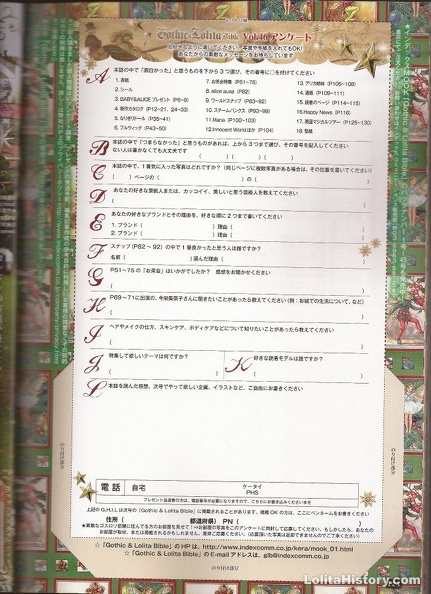 Gothic & Lolita Bible Vol.16 アンケート
お好きなように書いてください。写真や手紙を入れてもOK!
あなたからの素敵なメッセージをお待ちしています
A 本誌の中で「面白かった」と思うものを下から3つ選び、その番号に○を付けてください
1. 表紙
2. シール
3. BABY&ALICE プレゼント (P6~9)
4. 新作カタログ (P12~21、24~33)
5. なりきりドール (P35~41)
6. フルウィッグ (P43~50)
7. お茶会特集 (P51~75)
8. alice auaa (P82)
9. ワールドスナップ (P83~92)
10. スチームパンクス (P93~99)
11. Mana (P103)
12. Innocent World ほか (P104)
13. アリカ姉妹 (P105~108)
14. 通販 (P109~111)
15. 読者のページ (P114~115)
16. Happy News (P116)
17. 英国マジカルツアー (P125~130)
18. 型紙
B 本誌の中で「つまらなかった」と思うものがあれば、上から3つまで選び、その番号を記入してください
ない人は書かなくても大丈夫です
C 本誌の中で、1番気に入った写真はどれですか? (同じページに複数写真がある場合は、その位置を書いてください)
( ) ページの ( )
D あなたの好きな芸能人または、カッコイイ、美しいと思う芸能人を教えてください
( )
E あなたの好きなブランドとその理由を、好きな順に2つまで書いてください
1. ブランド ( ) 理由 ( )
2. ブランド ( ) 理由 ( )
F スナップ (P82~92) の中で1番良かったと思う人は誰ですか?
名前 ( ) 選んだ理由 ( )
G P51~75の「お茶会」はいかがでしたか? 感想をお聞かせください
( )
H P69~71に出演の、今田美奈子さんに聞きたいことがあったら教えてください (例:お城での生活について、など)
( )
I ヘアやメイクの仕方、スキンケア、ボディケアなどについて知りたいことがあったら教えてください
( )
J 特集して欲しいテーマは何ですか?
( )
K 好きな読者モデルは誰ですか?
( )
L 本誌を読んだ感想、次号でやって欲しい企画、イラストなど、ご自由にお書きください
電話
自宅
ケータイ
PHS
プレゼント当選者の方は、電話番号が必要になりますので、こちらにお書き込みくださいませ
上記のG,H,I,Lは次号の「Gothic & Lolita Bible」に掲載されることがあります。掲載OKの方は、ここにペンネームをお書きください
住所 ( 都道府県) PN ( )
☆「Gothic & Lolita Bible」のHPは、http://www.indexcomm.co.jp/kera/mook_01.html
☆「Gothic & Lolita Bible」のE-mailアドレスは、glb@indexcomm.co.jp
のり付け部分
のり付け部分
のり付け部分
LolitaHistory.com